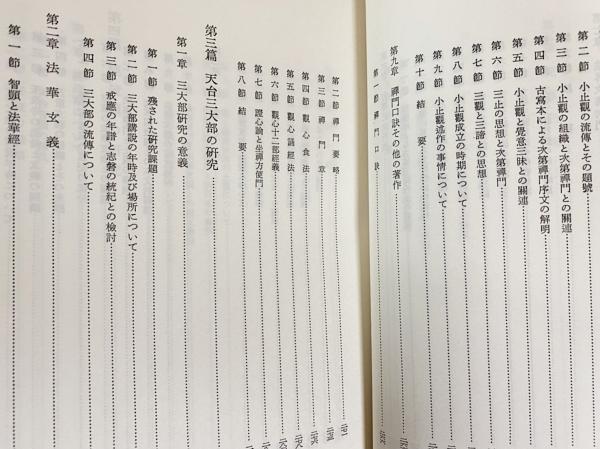 第二節 小止觀の流傳とその題號
第三節 小止觀の組織と次第禪門との關連
第四節 古寫本による次第禪門序文の解明
第五節 小止觀と覺意三昧との關連
第六節 三止の思想と次第禪門
第七節 三觀と三諦との思想
第八節 小止觀成立の時期について
第九節 小止觀述作の事情について
第十節 結要
第九章 禪門口訣その他の著作
第一節 禪門口訣
第二節 禪門要略
第三節 禪門章
第四節 觀心食法
第五節 觀心誦經法
第六節 觀心十二部經義
第七節 證心論と坐禪方便門
第八節 結要
第三篇 天台三大部の研究
第一章 三大部研究の意義
第一節 殘された研究課題
第二節 三大部講說の年時及び場所について
第三節 戒應の年譜と志磐の統紀との檢討
第四節 三大部の流傳について
第二章 法華玄義
第一節 智顗と法華經